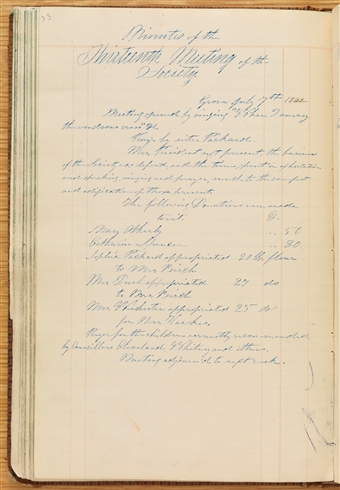 33
Minutes of the
Thirteenth Meeting of the
Society
Grove July 7th 1842
Meeting opened by singing "When I survey
the wondrous cross" &c
by sister Packard
Mrs President not present, the business
of the Society as deferd, and the time spent in exhortation
and singing and prayer, much to the comfort
and edification of those present.
The following Donations were made
to wit: $
Mary .. 50
Catharine .. 50
Sophia Packard appropriated 20 lb flour
to Mrs Birch
Mrs appropriated 27 do
to Mrs Birch
Mrs appropriated 25 do
for Mrs
Prayer for the children earnestly recommended
by Councillors Cleveland & Whitney and others.
Meeting adjourned to next week.